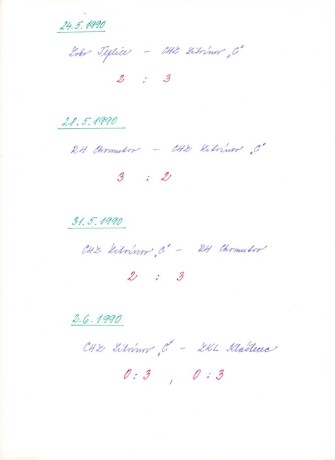 24.5.1990
Zobr Teplice – CHZ Litvínov „C“
2 : 3
28.5.1990
RH Chomutov – CHZ Litvínov „C“
3 : 2
31.5.1990
CHZ Litvínov „C“ – RH Chomutov
2 : 3
2.6.1990
CHZ Litvínov „C“ – ZKL Klášterec
0:3 , 0:3